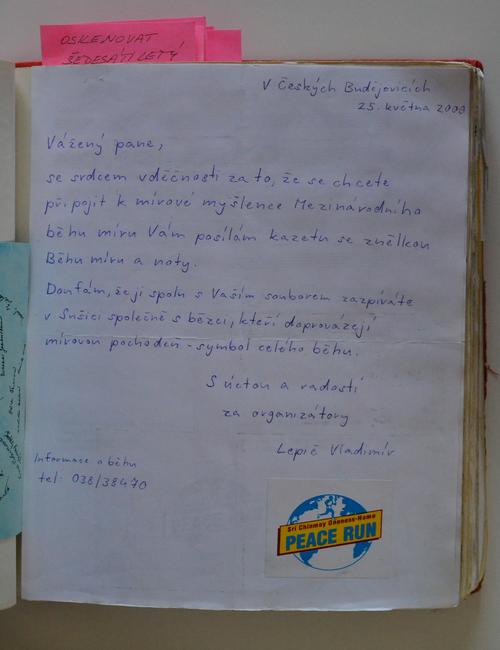 OSKENOVAT
ŠEDESÁTILETÝ
V Českých Budějovicích
25. května 2000
Vážený pane,
se srdcem vděčnosti za to, že se chcete
připojit k mírové myšlence Mezinárodního
běhu míru Vám posílám kazetu se znělkou
Běhu míru a noty.
Doufám, že ji spolu s Vaším souborem zazpíváte
v Sušici společně s běžci, kteří doprovázejí
mírovou pochodeň - symbol celého běhu.
S úctou a radostí
za organizátory
Lepič Vladimír
Informace o běhu
tel: 038/38470
Sri Chinmoy Oneness-Home
PEACE RUN